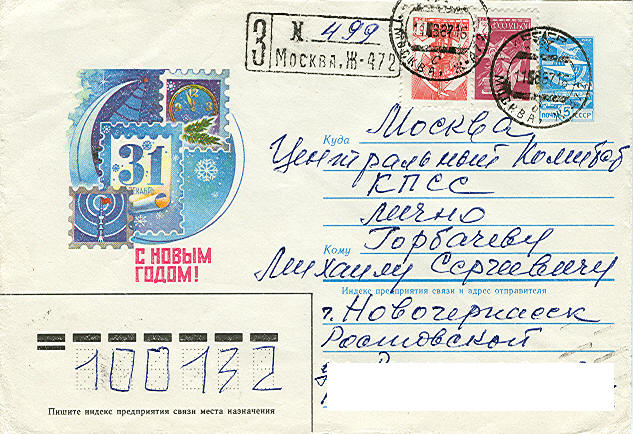 З № 499
Москва, Ж-472
ПОЧТА СССР
31
ДЕКАБРЬ
С НОВЫМ
ГОДОМ!
Куда
Москва
Центральный Комитет
КПСС
лично
Кому
Горбачеву
Михаилу Сергеевичу
Индекс предприятия связи и адрес отправителя
г. Новочеркасск
Ростовской
100132
Пишите индекс предприятия связи места назначения